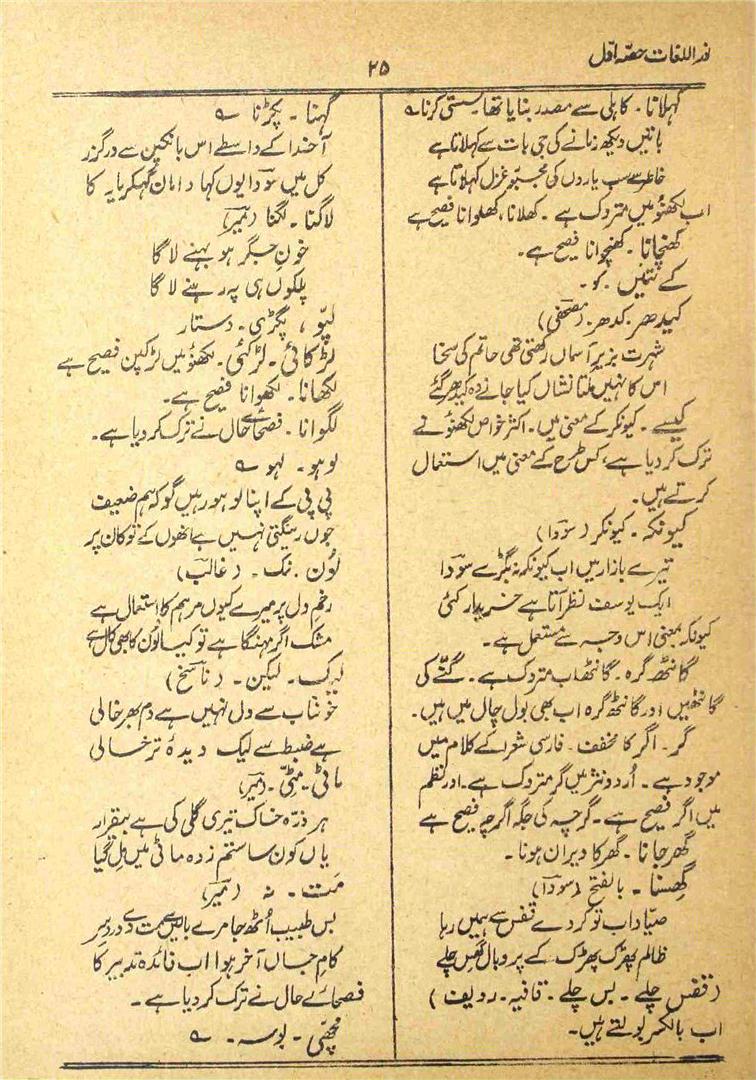 نور اللغات حصّہ اوّل
۲۵
کہلانا۔ کاہلی سے مصدر بنایا تھا۔ سستی کرنا ؎
باتیں دیکھ زمانے کی جی بات سے کہلاتا ہے
خاطر سے سب یاروں کی مجبور غزل کہلاتا ہے
اب لکھنؤ میں متروک ہے۔ کھلانا، کھلوانا فصیح ہے
کھنچانا۔ کھنچوانا فصیح ہے۔
کے تئیں۔ کو۔
کیدھر۔ کدھر۔ (مصحفی)
شہرت بزیرِ آسماں رکھتی تھی حاتم کی سخا
اس کا نہیں ملتا نشاں کیا جانے وہ کیدھر گئے
کیسے۔ کیونکر کے معنی میں۔ اکثر خواص لکھنؤ نے
ترک کر دیا ہے، کس طرح کے معنی میں استعمال
کرتے ہیں۔
کیونکہ۔ کیونکر (سوؔدا)
تیرے بازار میں اب کیونکہ نہ بگڑے سوؔدا
ایک یوسف نظر آتا ہے خریدار کئی
کیونکہ بمعنی اس وجہ سے مستعمل ہے۔
گانٹھ گرہ۔ گانٹھ اب متروک ہے۔ گنّے کی
گانٹھیں اور گانٹھ گرہ اب بھی بول چال میں ہیں۔
گر۔ اگر کا مخفف۔ فارسی شعرا کے کلام میں
موجود ہے۔ اُردو نثر میں گر متروک ہے۔ اور نظم
میں اگر فصیح ہے۔ گرچہ کی جگہ اگرچہ فصیح ہے
گھر جانا۔ گھر کا ویران ہونا۔
گھسنا۔ بالفتح (سوؔدا)
صیّاد اب تو کر دے قفس سے ہمیں رہا
ظالم پھڑک پھڑک کے پر و بال گھس چلے
(قفس چلے۔ بس چلے۔ قافیہ۔ ردیف)
اب بالکسر بولتے ہیں۔
گہنا۔ پکڑنا ؎
آ خدا کے واسطے اس بانکپن سے درگزر
کل میں سوؔدا یوں کہا دامان گہکر یار کا
لاگنا۔ لگنا (میرؔ)
خونِ جگر ہو بہنے لاگا
پلکوں ہی پہ رہنے لاگا
لپّو، پگڑی۔ دستار
لڑکائی۔ لڑکئی۔ لکھنؤ میں لڑکپن فصیح ہے
لکھانا۔ لکھوانا فصیح ہے۔
لگوانا۔ فصحائے حال نے ترک کر دیا ہے۔
لوہو۔ لہو ؎
پی پی کے اپنا لوہو رہیں گو کہ ہم ضعیف
جوں رینگتی نہیں ہے انھوں کے تو کان پر
لُون۔ نمک۔ (غالبؔ)
زخمِ دل پر میرے کیوں مرہم کا استعمال ہے
مشک اگر مہنگا ہے تو کیا لُون کا بھی کال ہے
لیک۔ لیکن۔ (ناسخؔ)
خونناب سے دل نہیں ہے دم بھر خالی
ہے ضبط سے لیک دیدۂ تر خالی
ماٹی۔ مٹّی۔ (میرؔ)
ہر ذرّہ خاک تیری گلی کی ہے بیقرار
یاں کون سا ستم زدہ ماٹی میں مِل گیا
مَت۔ نہ (میرؔ)
بس طبیب اُٹھ جا مرے بالیں سے مت دے دردِ سر
کامِ جاں آخر ہوا اب فائدہ تدبیر کا
فصحائے حال نے ترک کر دیا ہے۔
مچھّی۔ بوسہ۔ ؎